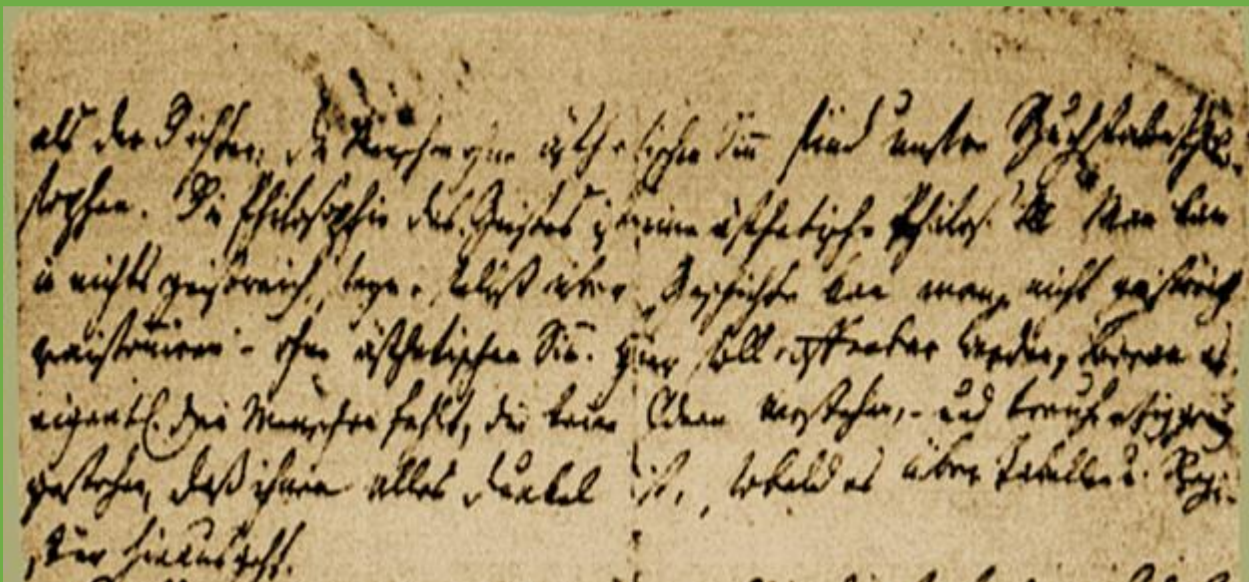 als der Dichter. Die Menschen ohne ästhetischen Siñ sind unsre Buchstabenphilo-
sophen. Die Philosophie des Geistes ist eine ästhetische Philos. Man kan
in nichts geistreich seyn, selbst über Geschichte kan man nicht geistreich
raisonniren - ohne ästhetischen Siñ. Hier soll offenbar werden, woran es
eigentl. den Menschen fehlt, die keine Ideen verstehen, - und treuherzig genug
gestehen, daß ihnen alles dunkel ist, sobald es über Tabellen u. Regi-
ster hinausgeht.